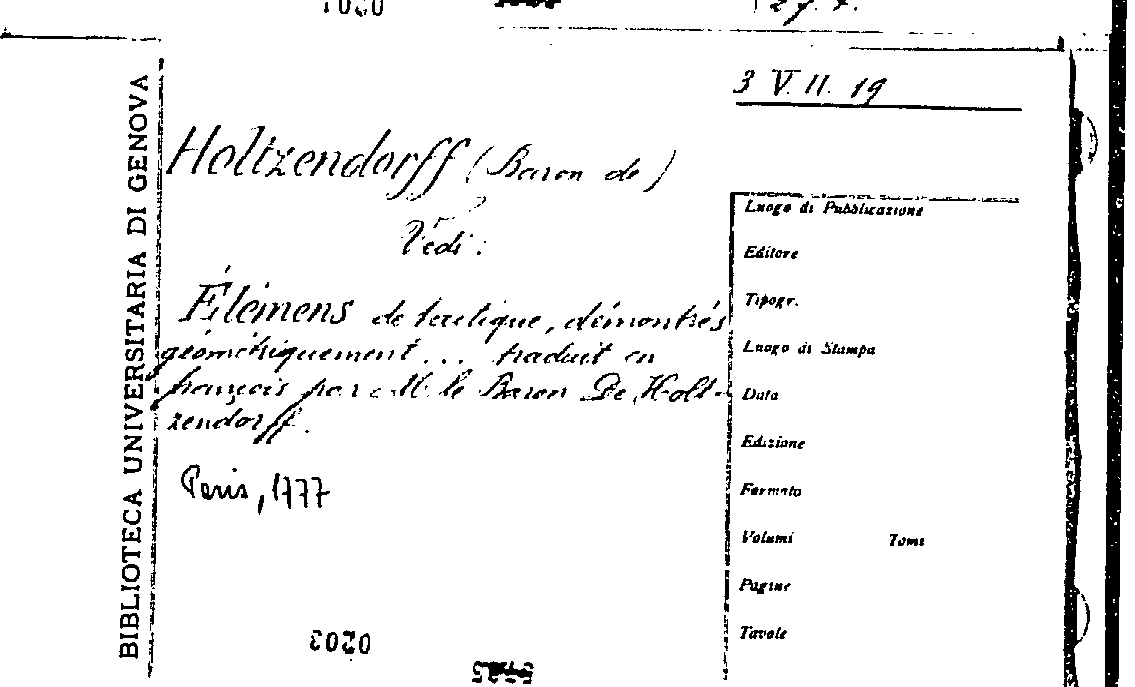 3 V. 11. 19
BIBLIOTECA UNIVERSITARIA DI GENOVA
Holtzendorff (Baron de)
Vedi:
Élémens de tactique, démontrés
géométriquement... traduit en
françois par M. le Baron De Holt-
zendorff.
Paris, 1777
0203
Luogo di Pubblicazione
Editore
Tipogr.
Luogo di Stampa
Data
Edizione
Formato
Volumi Tomi
Pagine
Tavole